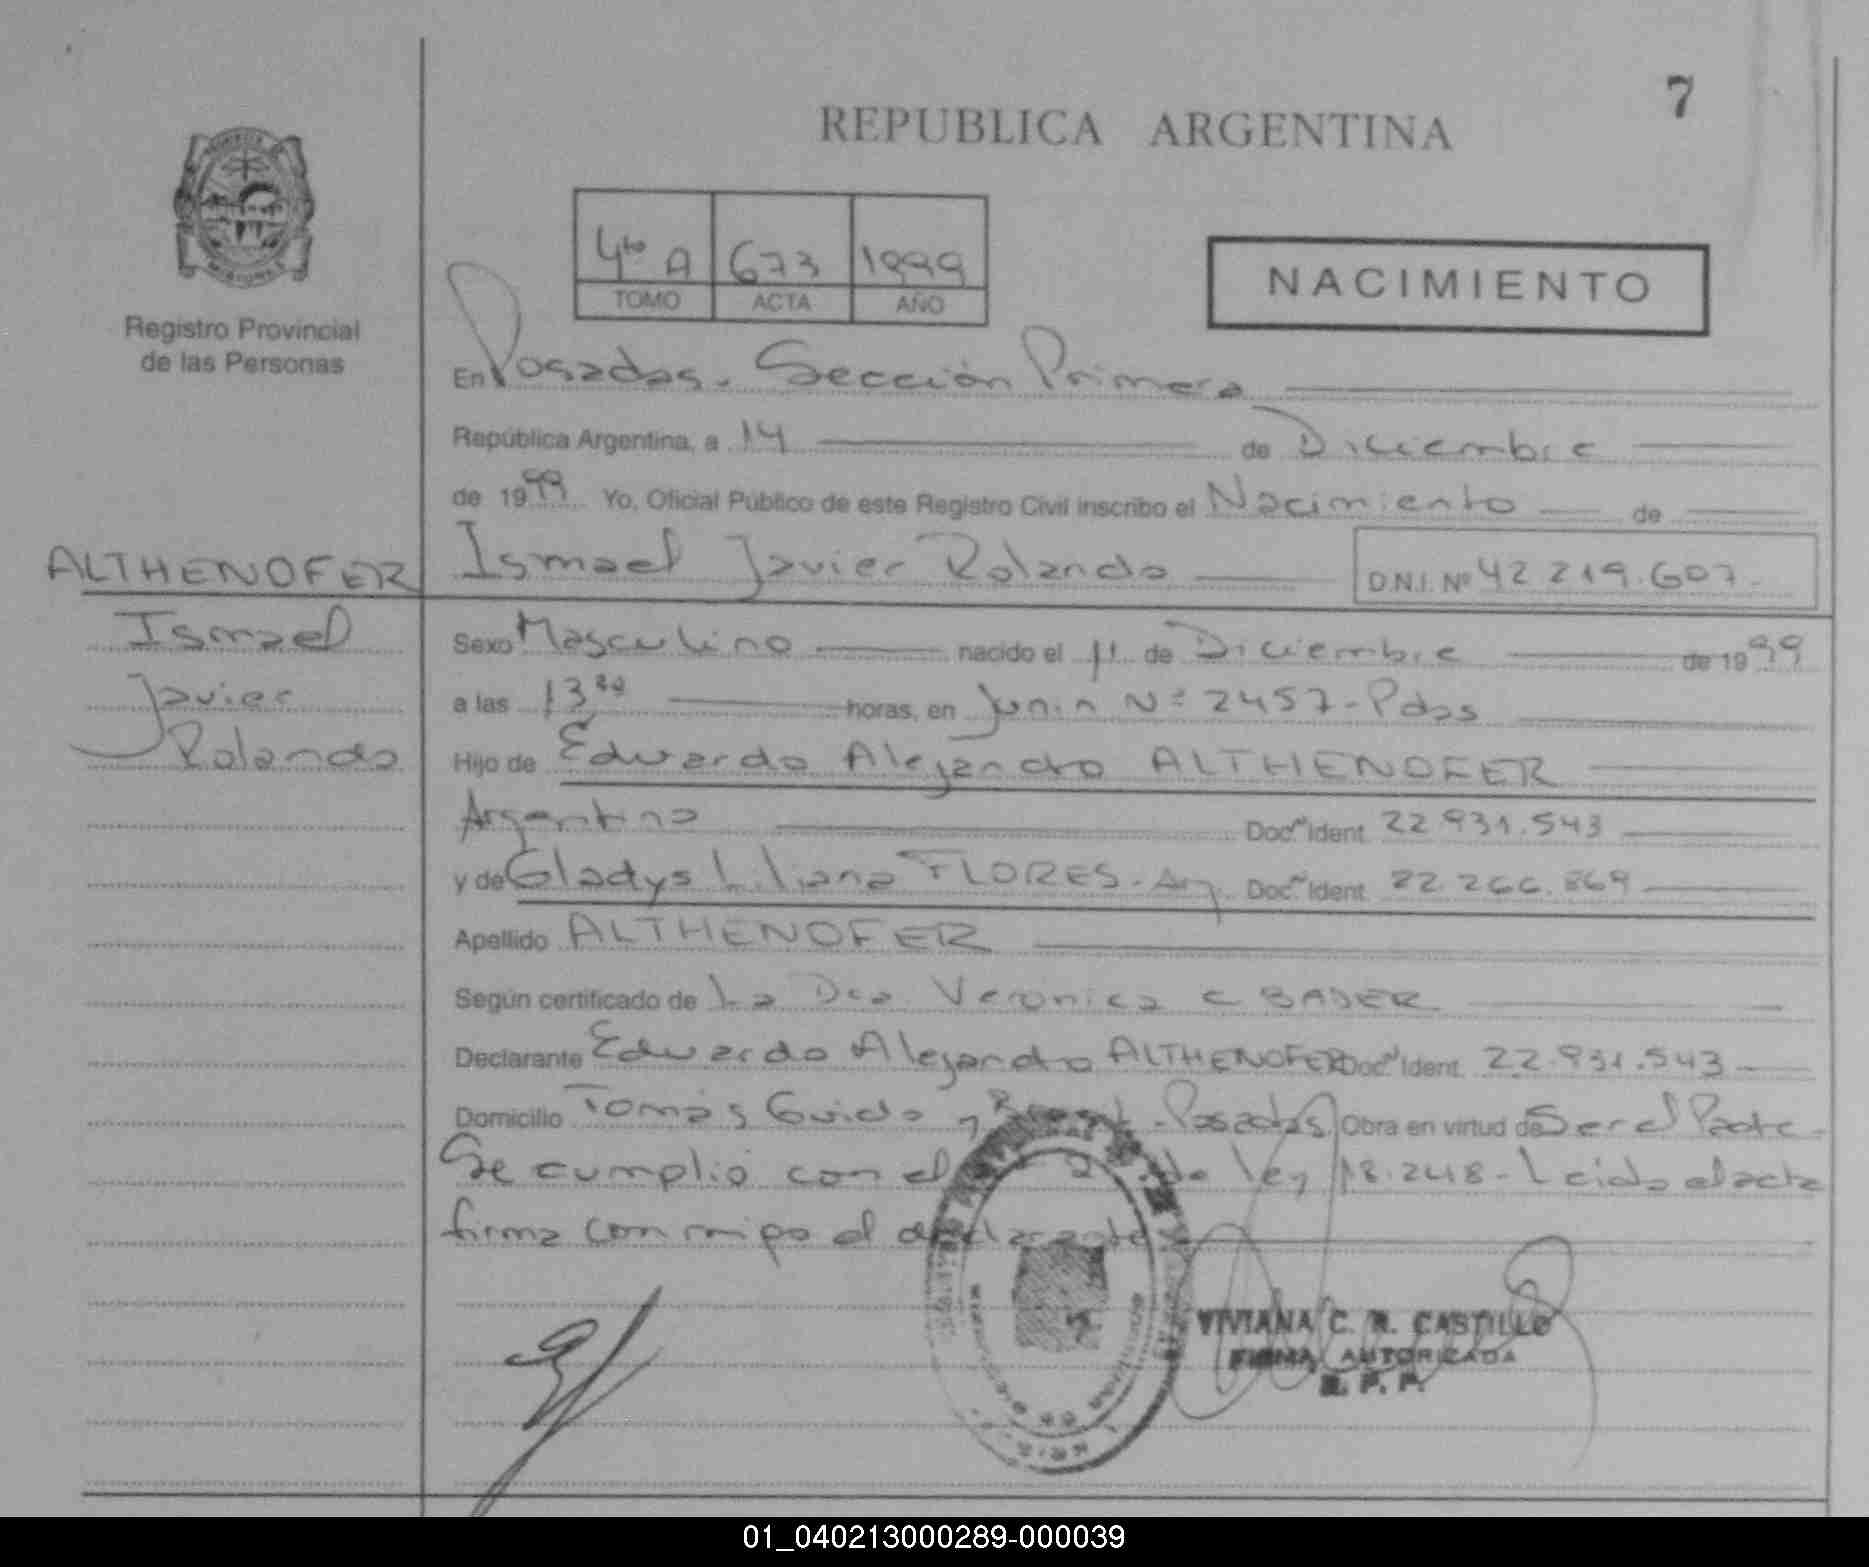 7
REPUBLICA ARGENTINA
4to A 673 1999
TOMO ACTA AÑO
NACIMIENTO
Registro Provincial
de las Personas
En Posadas. Sección Primera
República Argentina, a 14 de Diciembre
de 1999 Yo, Oficial Público de este Registro Civil inscribo el Nacimiento de
ALTHENOFER
Ismael
Javier
Rolando
Ismael Javier Rolando D.N.I. Nº 42 219.607.
Sexo Masculino nacido el 11 de Diciembre de 1999
a las 13 horas, en Junin Nº 2457 - Pdas
Hijo de Eduardo Alejandro ALTHENOFER
Argentino Doc. Ident. 22.931.543
y de Gladys Liliana FLORES - Arg. Doc. Ident. 22.266.869
Apellido ALTHENOFER
Según certificado de La Dra. Veronica C BADER
Declarante Eduardo Alejandro ALTHENOFER Doc. Ident. 22.931.543
Domicilio Tomás Guido y - Posadas Obra en virtud de Ser el Padre -
Se cumplió con el 2 de ley 18.248 - Leida el acta
firma con migo el declarante
VIVIANA C. R. CASTILLO
FIRMA AUTORIZADA
R. P. P.
01_040213000289-000039